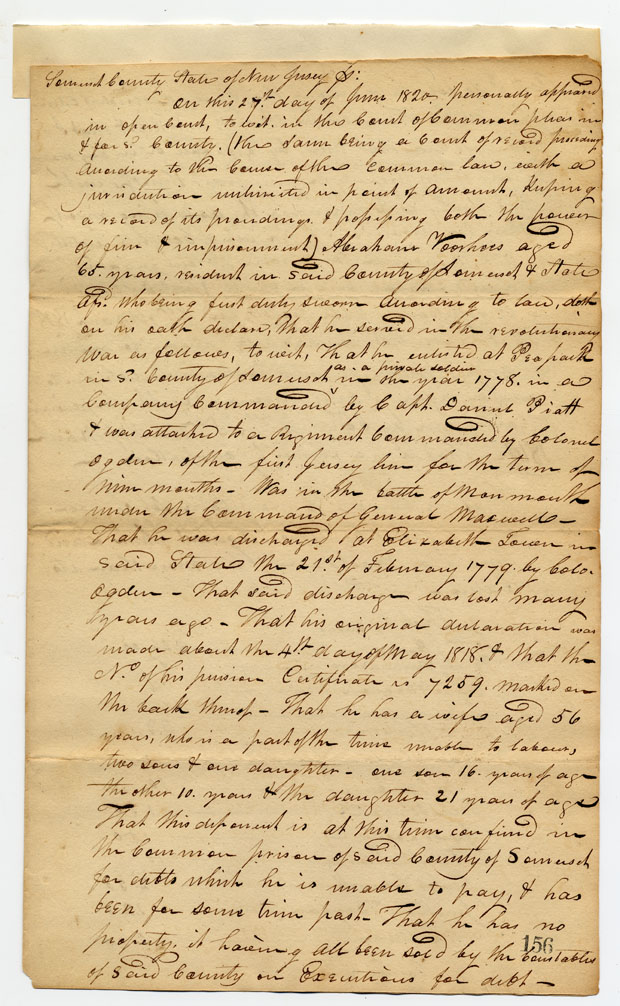 Somerset County State of New Jersey Ss:
On this 27th day of June 1820. personally appeared
in open Court, to wit. in the Court of Common pleas in
& for Sd. County. (the Same being a Court of record proceeding
According to the Course of the Common law, with a
jurisdiction unlimited in point of Amount, Keeping
a record of its proceedings & possessing both the power
of fine & imprisonment) Abraham Voorhees aged
65. years, resident in Said County of Somerset & State
Afs. who being first duly sworn According to law, doth
on his oath declare, That he served in the revolutionary
War as follows, to wit, That he enlisted at Peapack
in Sd. County of Somerset as a private soldier in the year 1778. in a
Company Commanded by Capt. Daniel Piatt
& was attached to a Regiment Commanded by Colonel
Ogden, of the first Jersey line for the term of
Nine months - Was in the battle of Monmouth
under the Command of General Maxwell -
That he was discharged at Elizabeth Town in
Said State the 21st. of February 1779. by Colo.
Ogden - That said discharge was lost many
years ago - That his original declaration was
made about the 4th day of May 1818. & that the
No. of his pension Certificate is 7259. marked on
the back thereof - That he has a wife aged 56
years, who is a part of the time unable to labour,
two sons & one daughter - one son 16. years of age
the other 10. years & the daughter 21 years of age
That this deponent is at this time confined in
the Common prison of Said County of Somerset
for debts which he is unable to pay, & has
been for some time past - That he has no
property, it having all been sold by the Constables
156
of Said County on Executions for debt -